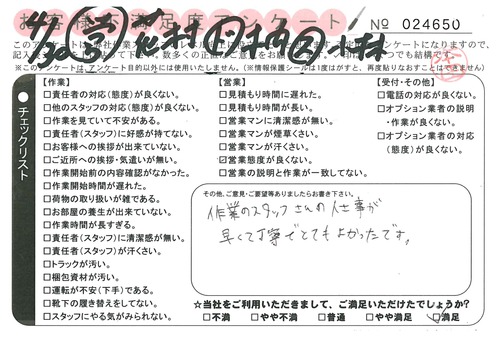 お客様不満足度アンケート No 024650
4/30(営)花村 作 小林
【作業】
□責任者の対応(態度)が良くない。
□他のスタッフの対応(態度)が良くない。
□作業を見ていて不安がある。
□責任者(スタッフ)に好感が持てない。
□お客様への挨拶が出来ていない。
□ご近所への挨拶・気遣いが無い。
□作業開始前の内容確認がなかった。
□作業開始時間が遅れた。
□荷物の取り扱いが雑である。
□お部屋の養生が出来ていない。
□作業時間が長すぎる。
□責任者(スタッフ)に清潔感が無い。
□責任者(スタッフ)が汗くさい。
□トラックが汚い。
□梱包資材が汚い。
□運転が不安(下手)である。
□靴下の履き替えをしてない。
□スタッフにやる気がみられない。
チェックリスト
【営業】
□見積もり時間に遅れた。
□見積もり時間が長い。
□営業マンに清潔感が無い。
□営業マンが煙草くさい。
□営業マンが汗くさい。
☑営業態度が良くない。
□営業の説明と作業が一致してない。
【受付・その他】
□電話の対応が良くない。
□オプション業者の説明
・作業が良くない。
□オプション業者の対応
(態度)が良くない。
その他、ご意見・ご要望等ありましたらお書き下さい。
作業のスタッフさんの仕事が
早くて丁寧でとてもよかったです。
☆当社をご利用いただきまして、ご満足いただけたでしょうか?
□不満 □やや不満 □普通 □やや満足 ☑満足